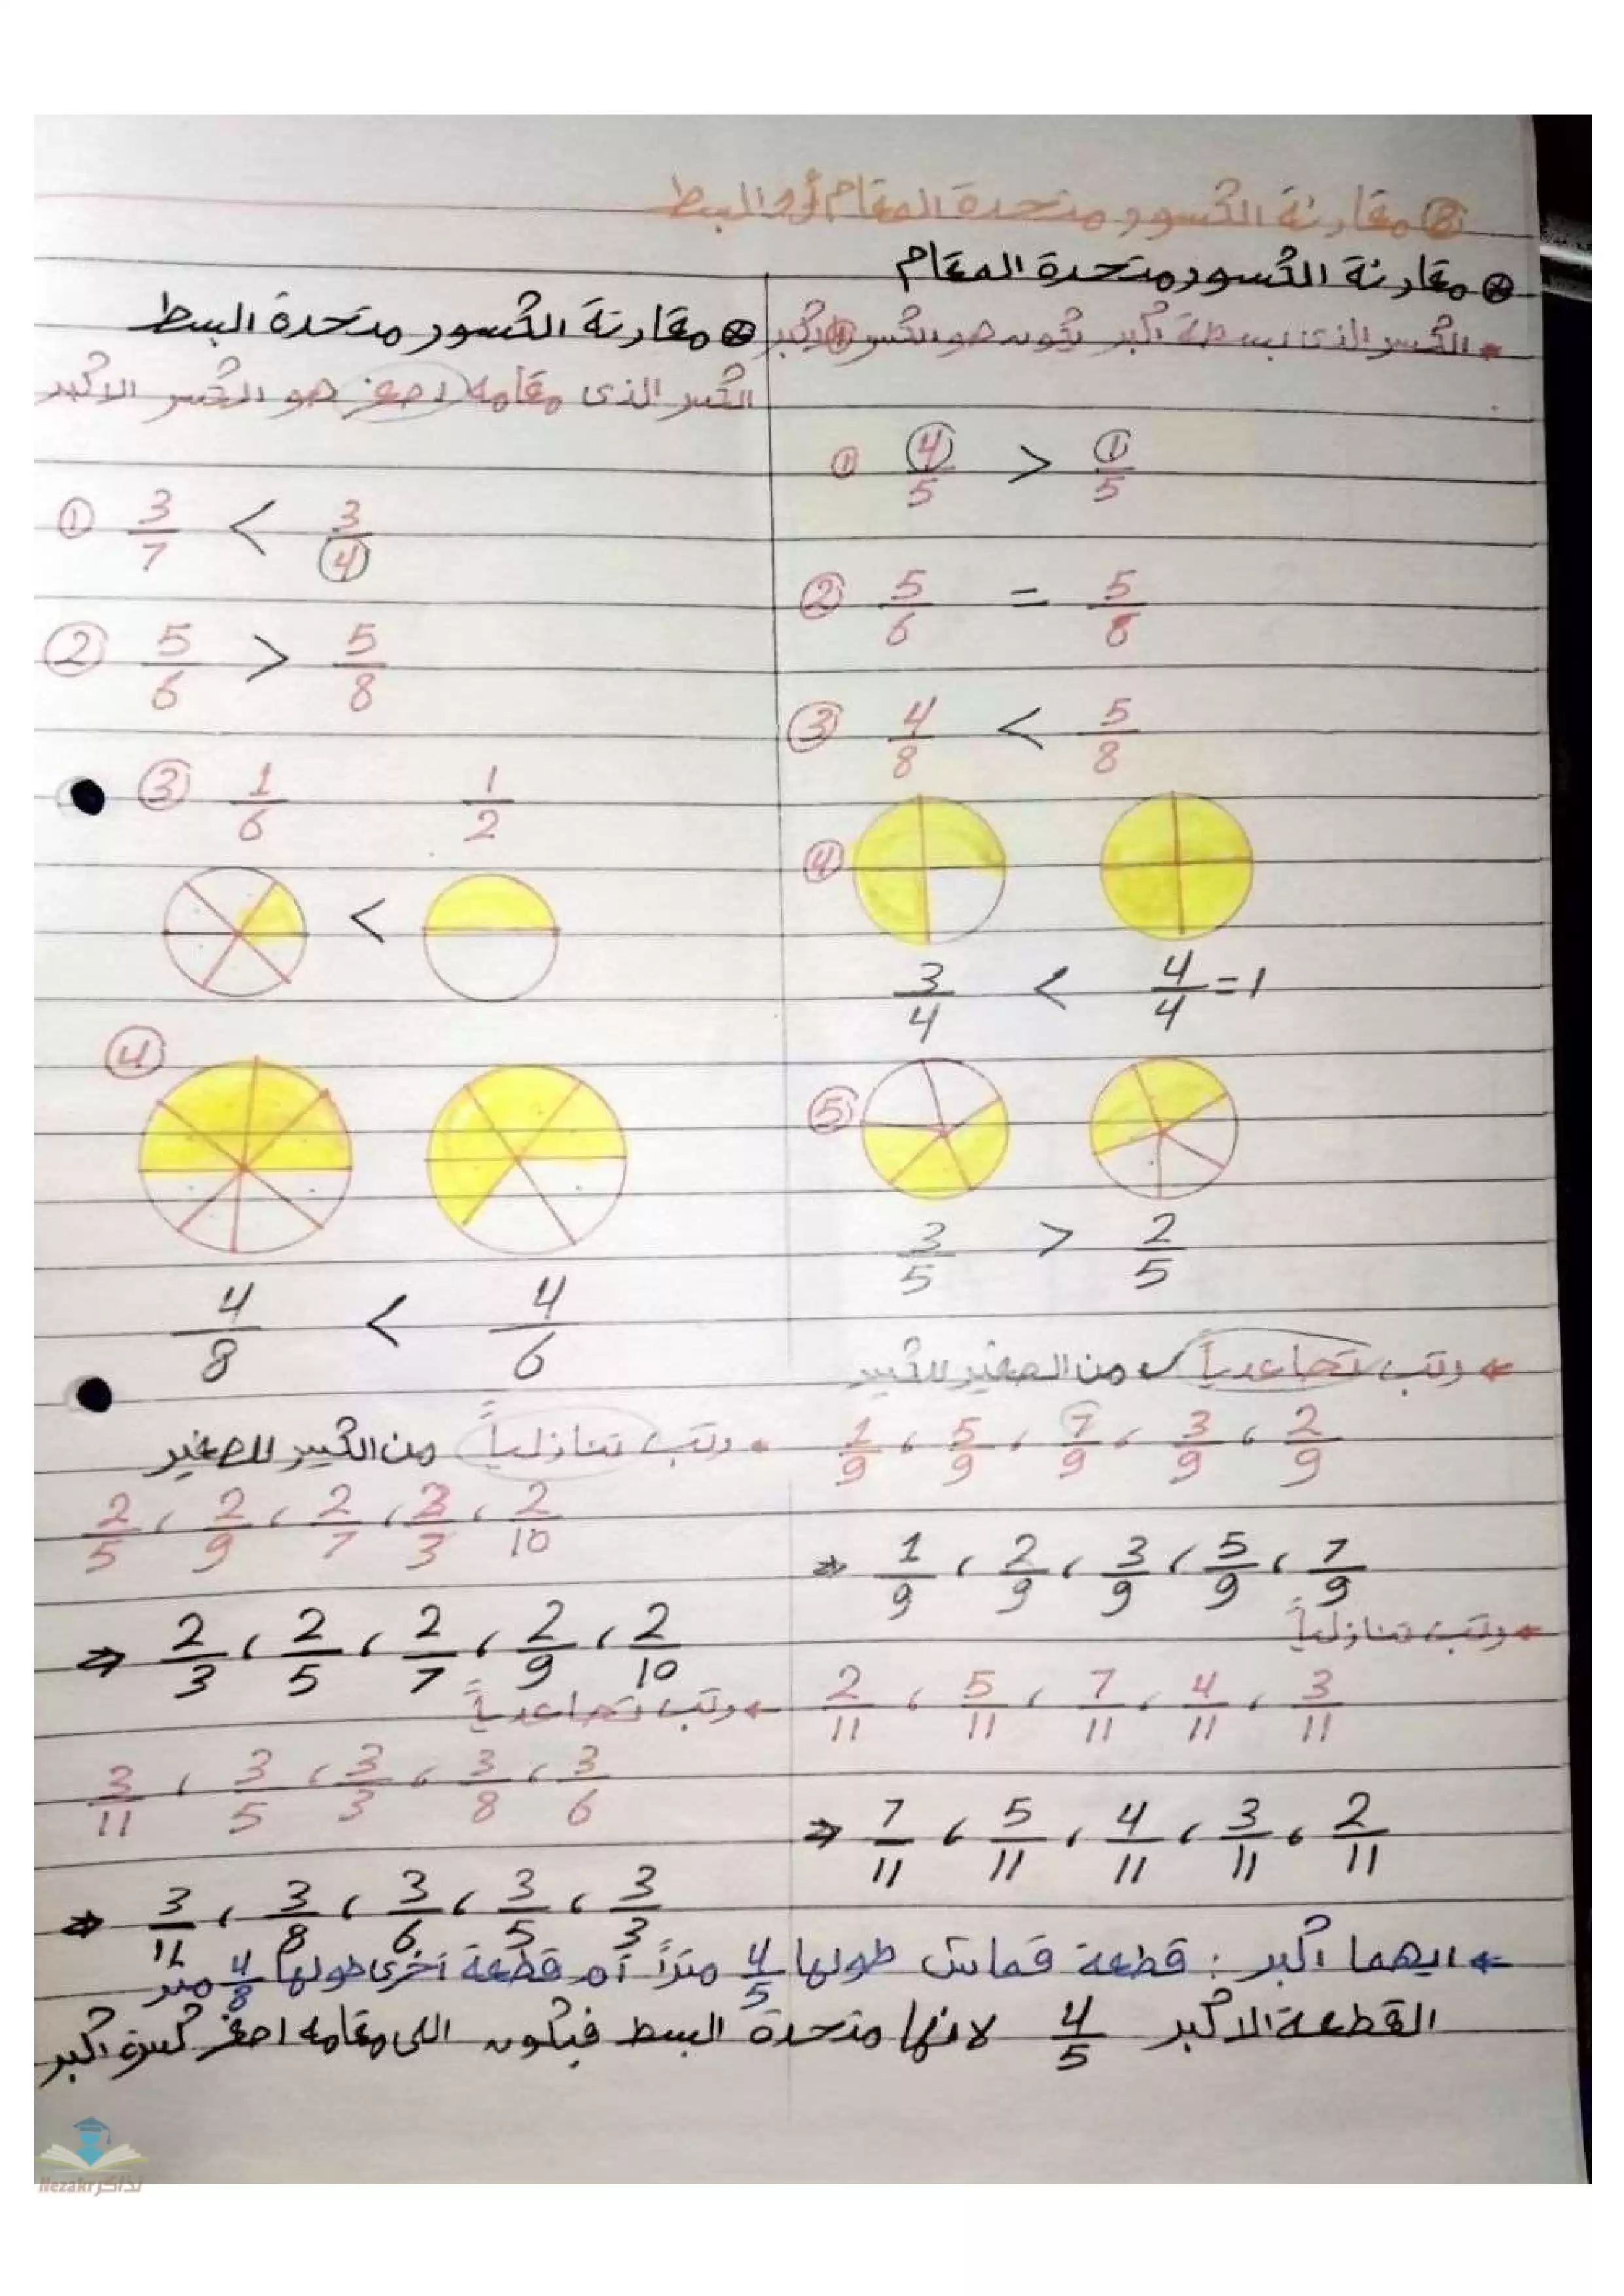 ⑧ مقارنة الكسور متحدة المقام أو البسط
⊛ مقارنة الكسور متحدة المقام
- الكسر الذى بسطة أكبر يكون هو الكسر الأكبر
① 4/5 > 1/5
② 5/6 = 5/6
③ 4/8 < 5/8
④
3/4 < 4/4 = 1
⑤
3/5 > 2/5
← رتب تصاعدياً من الصغير للكبير
1/9 ، 5/9 ، 7/9 ، 3/9 ، 2/9
⇒ 1/9 ، 2/9 ، 3/9 ، 5/9 ، 7/9
← رتب تنازلياً
2/11 ، 5/11 ، 7/11 ، 4/11 ، 3/11
⇒ 7/11 ، 5/11 ، 4/11 ، 3/11 ، 2/11
⊛ مقارنة الكسور متحدة البسط
الكسر الذى مقامه اصغر هو الكسر الاكبر
① 3/7 < 3/4
② 5/6 > 5/8
③ 1/6 1/2
<
④
4/8 < 4/6
• رتب تنازلياً من الكبير للصغير
2/5 ، 2/9 ، 2/7 ، 2/3 ، 2/10
⇒ 2/3 ، 2/5 ، 2/7 ، 2/9 ، 2/10
← رتب تصاعدياً
3/11 ، 3/5 ، 3/3 ، 3/8 ، 3/6
⇒ 3/11 ، 3/8 ، 3/6 ، 3/5 ، 3/3
← ايهما اكبر : قطعة قماش طولها 4/5 متراً أم قطعة أخرى طولها 4/8 متر
القطعة الاكبر 4/5 لانها متحدة البسط فيكون اللى مقامه اصغر كسره اكبر
Nezakr نذاكر